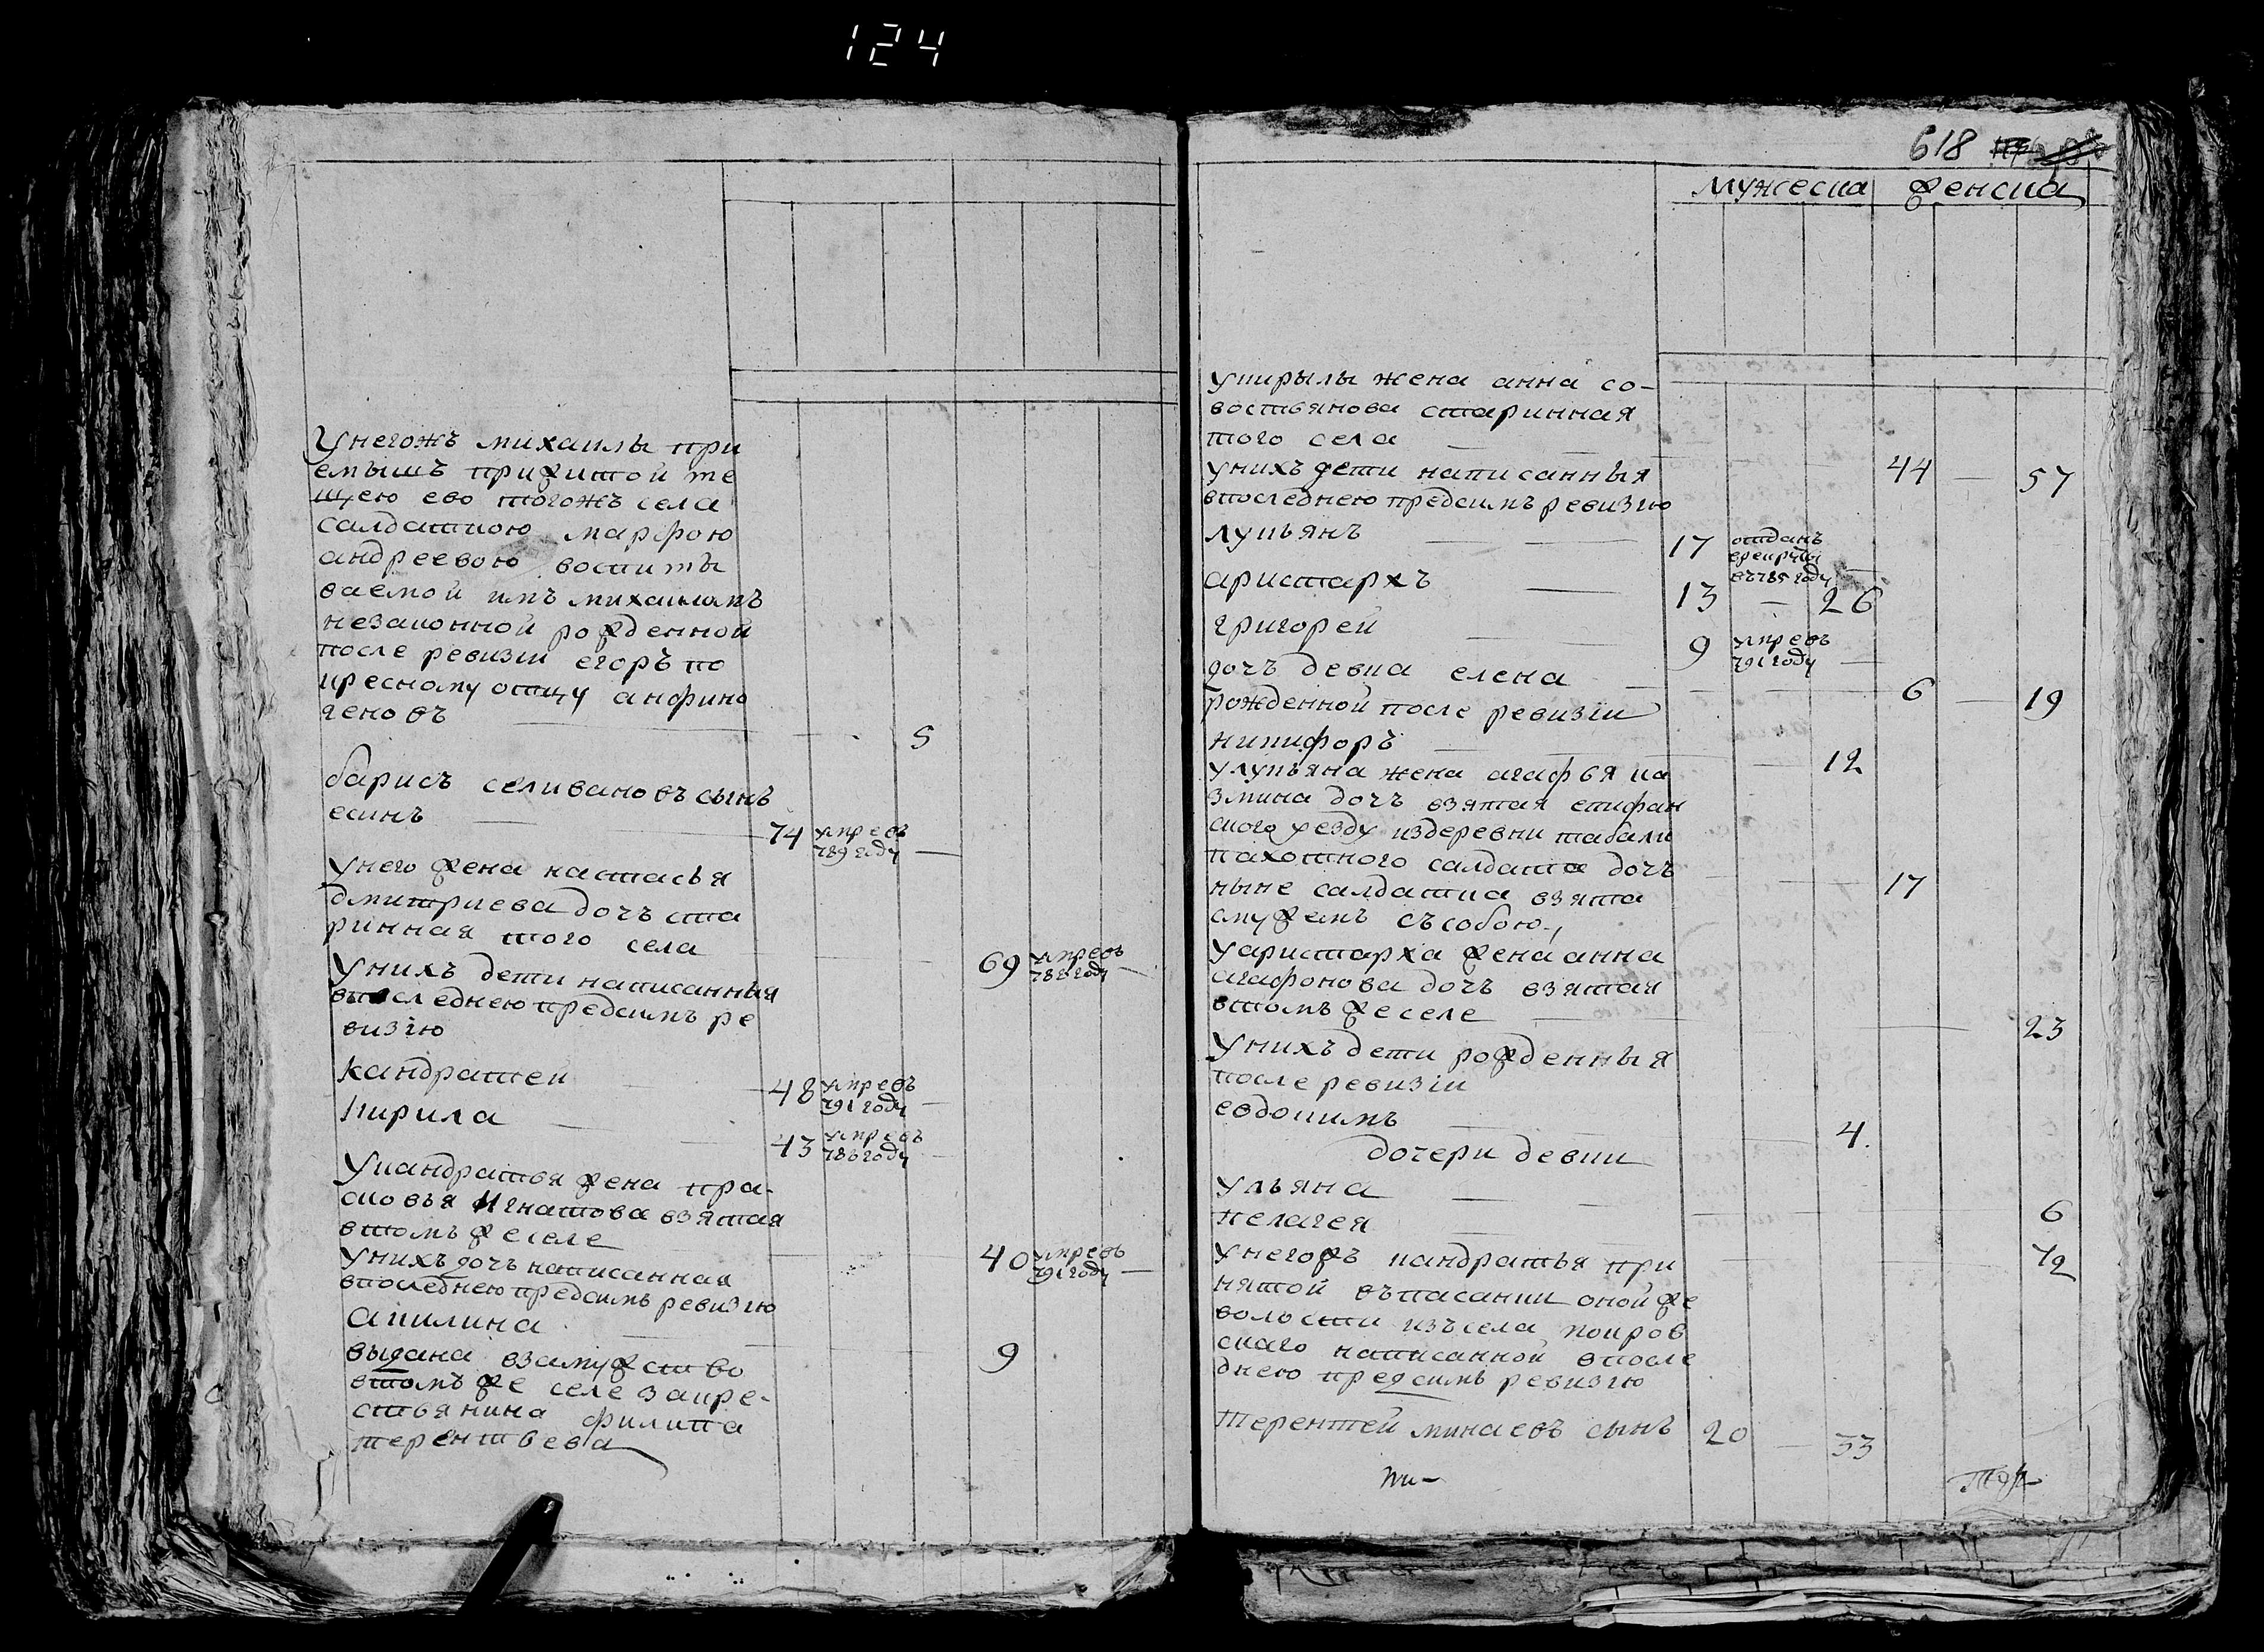 124
У негожъ михаилы при
емышъ прижитой те
щею ево тогожъ села
салдаткою марфою
андреевою воспиты
ваемой имъ михаиломъ
незаконной рожденной
после ревизiи егоръ по
кресному отцу анфино
геновъ 5
барисъ селивановъ сынъ
есинъ 74 умре въ 789 году —
У него жена настасья
дмитриева дочь ста
ринная того села 69 умре въ 782 году —
У нихъ дети написанныя
в последнею пред симъ ре
визiю
Кандратей 48 умре въ 791 году —
Кирила 43 умре въ 786 году —
У кандратья жена пра-
сковья Игнатова взятая
в томъ же селе 40 умре въ 791 году —
У нихъ дочь написанная
в последнею пред симъ ревизiю
Акилина 9
выдана в замужство
в томъ же селе за кре-
стьянина филипа
терентьева
618
мужеска женска
У кирылы жена анна со-
востьянова старинная
того села 44 — 57
У нихъ дети написанныя
в последнею пред симъ ревизiю
лукьянъ 17 отданъ в рекруты въ 785 году —
аристархъ 13 — 26
григорей 9 умре въ 791 году —
дочь девка елена 6 — 19
рожденной после ревизiи
никифоръ 12
У лукьяна жена агафья ка
змина дочь взятая епифан
скаго уезду из деревни табали
пахотного салдата дочь 17
ныне салдатка взята
мужемъ съ собою,
У аристарха жена анна
агафонова дочь взятая
в томъ же селе 23
У нихъ дети рожденныя
после ревизiи
евдокимъ 4.
дочери девки
Ульяна 6
пелагея 1/2
У негожъ кандратья при
нятой въ писании оной же
волости изъ села покров
скаго написанной в после
днею пред симъ ревизiю
терентей минаевъ сынъ 20 — 33